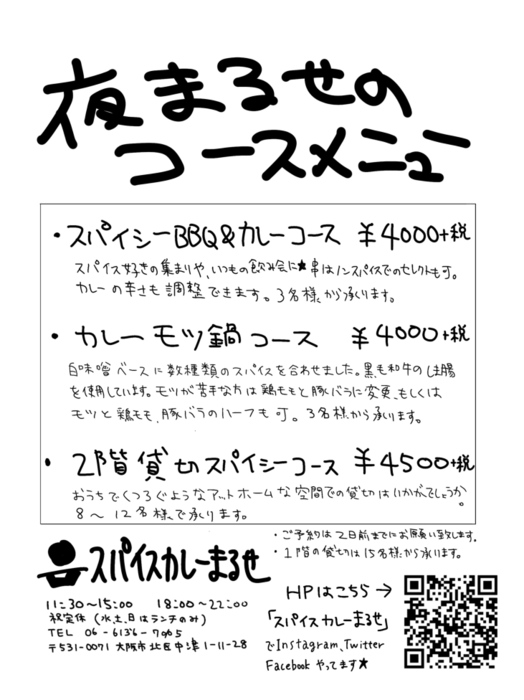 夜まるせの
コースメニュー
・スパイシーBBQ&カレーコース ¥4000+税
スパイス好きの集まりや、いつもの飲み会に★串はノンスパイスでのセレクトも可。
カレーの辛さも調整できます。3名様から承ります。
・カレーモツ鍋コース ¥4000+税
白味噌ベースに数種類のスパイスを合わせました。黒毛和牛のしま腸
を使用しています。モツが苦手な方は鶏ももと豚バラに変更、もしくは
モツと鶏もも、豚バラのハーフも可。3名様から承ります。
・2階貸切スパイシーコース ¥4500+税
おうちでくつろぐようなアットホームな空間での貸切はいかがでしょうか。
8～12名様で承ります。
・ご予約は2日前までにお願い致します.
・1階の貸切は15名様から承ります.
スパイスカレーまるせ
11:30～15:00 18:00～22:00
祝定休 (水,土,日はランチのみ)
TEL 06-6136-7705
〒531-0071 大阪市北区中津1-11-28
HPはこちら→
「スパイスカレーまるせ」
でInstagram、Twitter
Facebookやってます★